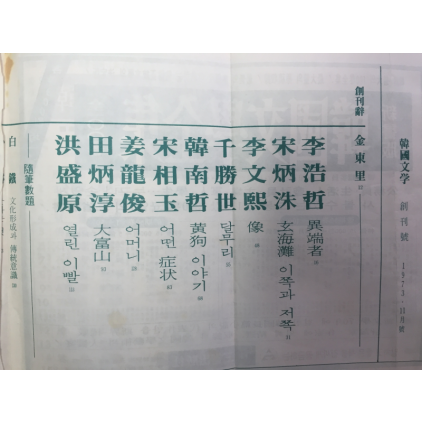 韓國文学 創刊號 1973·11月號
創刊辭 — 金東里
李浩哲 異端者
宋炳洙 玄海灘 이쪽과 저쪽
李文熙 像
千勝世 달무리
韓南哲 黃狗 이야기
宋相玉 어떤 症状
姜龍俊 어머니
田炳淳 大富山
洪盛原 열린 이빨
隨筆數題
白鐵 文化形成과 傳統意識